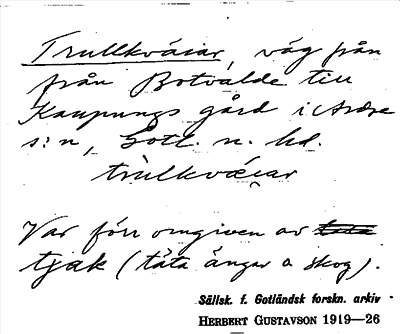 Trullkväiar, väg från
från Botvalde till
Kaupungs gård i Ardre
s:n, Gotl. n. hd.
trùlkvæiar
Var förr omgiven av tata
tjak (täta ängar o skog).
Sällsk. f. Gotländsk forskn. arkiv
HERBERT GUSTAVSON 1919—26